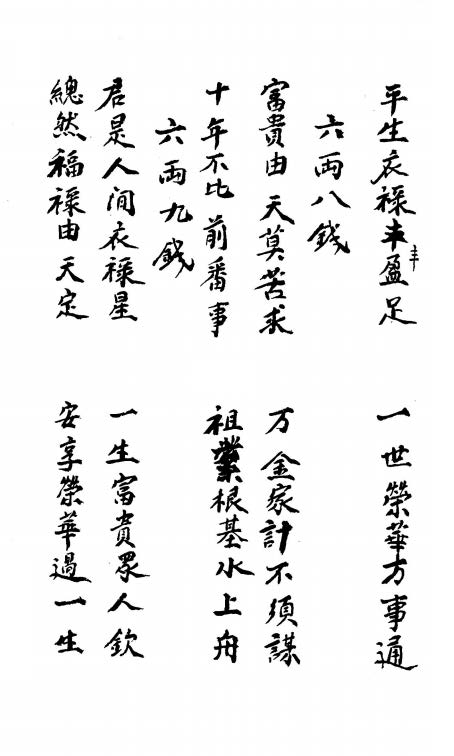 平生衣祿丰盈足 一世榮華万事通
丰
六兩八錢
富貴由天莫苦求 万金家計不須謀
十年不比前番事 祖業根基水上舟
六兩九錢
君是人间衣祿星 一生富貴眾人欽
總然福祿由天定 安享榮華過一生